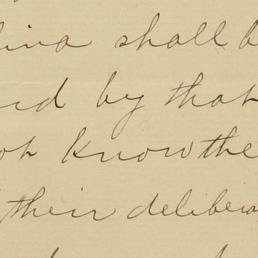 lina shall b
ed by that
ot Know the
their delibera